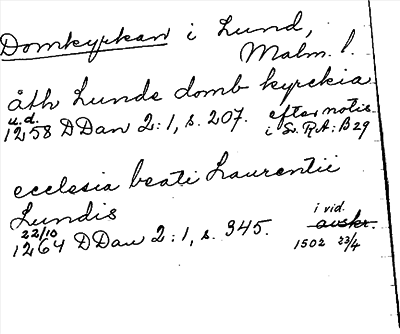 Domkyrkan i Lund,
Malm. l.
åth Lunde domb kyrckia
u.d.
1258 DDan 2:1, s. 207. efter notis
i Sv. R.A: B29
ecclesia beati Laurentii
Lundis
22/10
1264 DDan 2:1, s. 345. i vid.
avskr.
1502 23/4